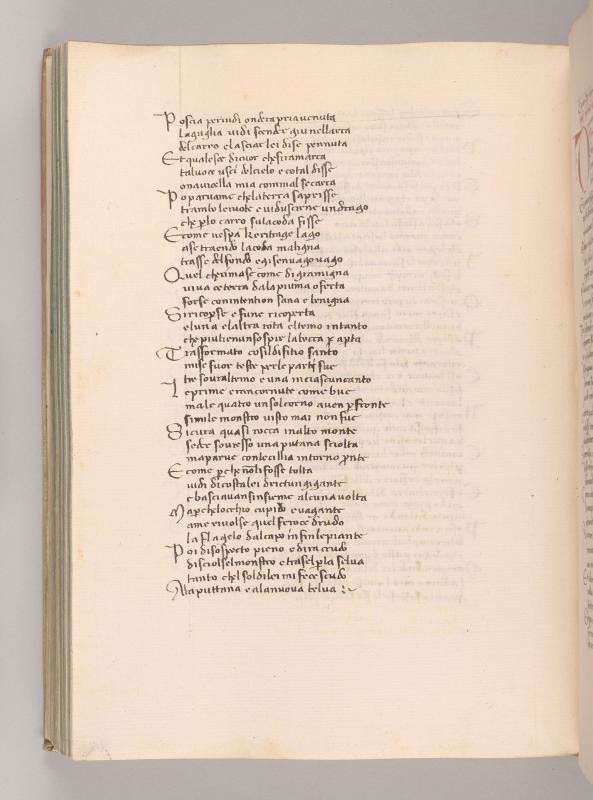 Poscia perindi onderapria venuta
laguglia vidi scender giu nellarca
delcarro elasciar lei dise pennuta
Et qualesce dicuor chesiramarca
tal voce usci delcielo e cotal disse
onavicella mia commal secarca
Po parvame chelaterra saprisse
tramboleruote e vidusciene undrago
che plo carro sulacoda fisse
E come vespa keritragge lago
ase traendo lacoda maligna
trasse delfondo e gisenvago vago
Quel cherimase come di gramigna
viva ceterra dalapiuma oferta
forse conintention sana e benigna
Si ricopse e fune ricoperta
eluna elaltra rota eltemo intanto
che piu tienunsospir labocca p apta
Trasformato cosildifitio santo
mise fuor teste perle parti sue
tre sovraltemo e una inciascuncanto
Le prime erancornute come bue
ma le quatro unsolcorno aven p fronte
simile monstro visto mai non fue
Sicura quasi rocca inalto monte
seder sovresso una putana sciolta
maparve conle cillia intorno pnte
E come pche nolifosse tolta
vidi dicostalei drictun gigante
e basciavansinsieme alcuna volta
Ma pchelocchio cupido e vagante
ame rivolse quel feroce drudo
la flagelo dalcapo infinlepiante
Poi disospecto pieno e dira crudo
disciolselmonstro e traselpla selva
tanto chel soldilei mi fece scudo
Alaputtana e alanuova belva